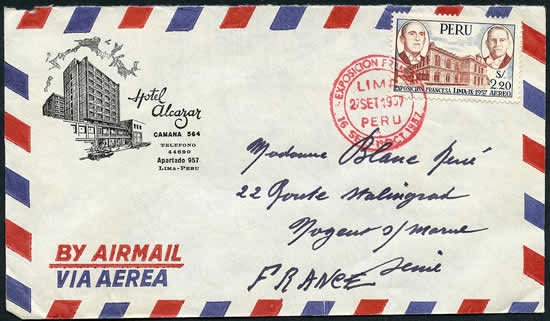 Hotel
Alcazar
CAMANA 564
TELEFONO
44690
Apartado 957
LIMA-PERU
EXPOSICION
LIMA
SET 1957
PERU
PERU
S/.
2.20
EXPOSICION FRANCESA LIMA-IX-1957 AEREO
Madame Blanc René
22 Route Stalingrad
Nogent s/ marne
Seine
FRANCE
BY AIRMAIL
VIA AEREA